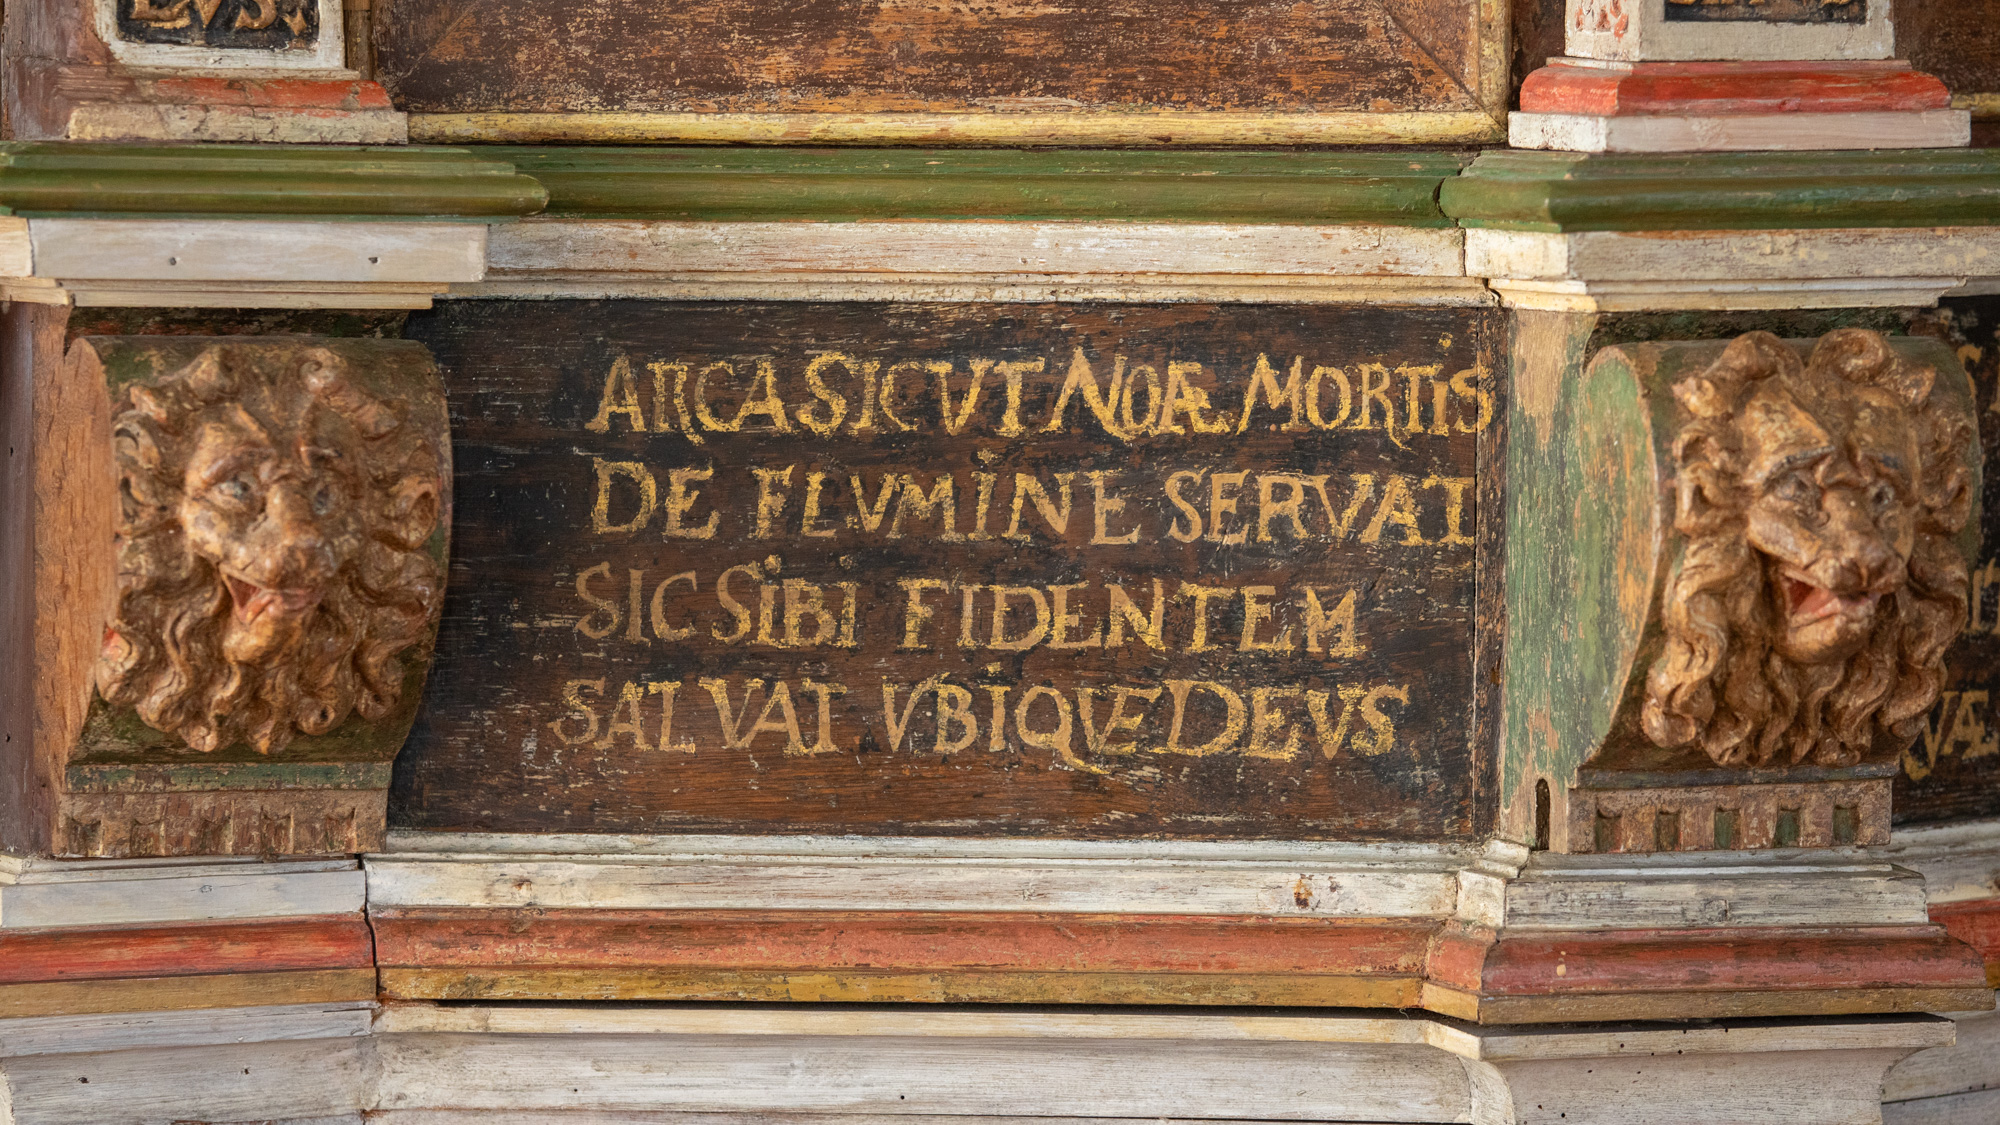 ARCA SICVT NOÆ MORTIS
DE FLVMINE SERVAT
SIC SIBI FIDENTEM
SALVAT VBIQVE DEVS